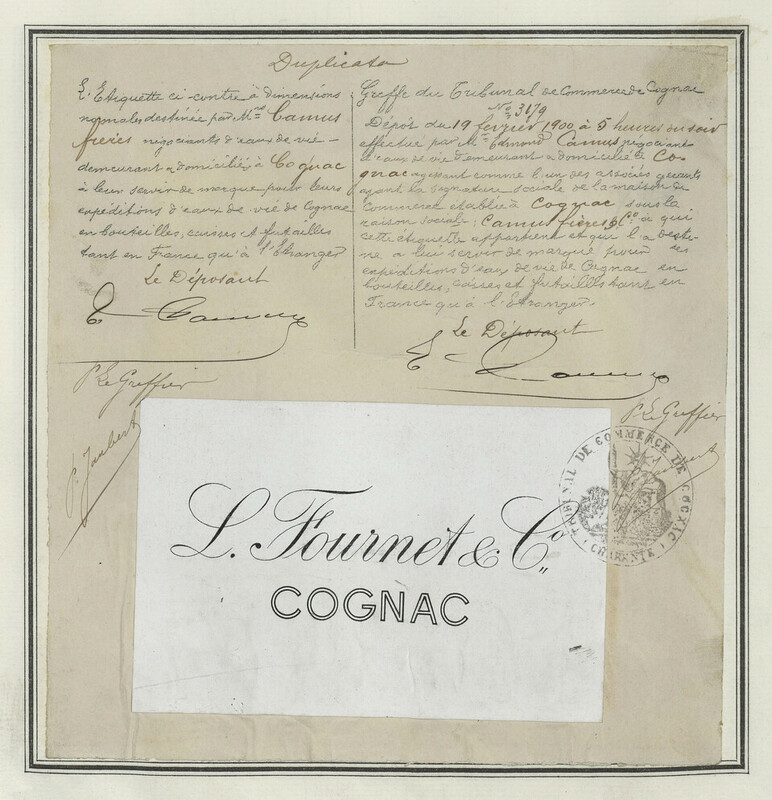 Duplicata
L'Etiquette ci-contre à dimensions
normales destinée par Mrs Camus
frères négociants d'eaux de vie
demeurant & domiciliés à Cognac
à leur servir de marque pour leurs
expéditions d'eaux de vie de Cognac
en bouteilles, caisses et futailles
tant en France qu'à l'Etranger
Le Déposant
E Camus
Pr Le Greffier
P. Jaubert
Greffe du Tribunal de Commerce de Cognac
No 3179
Dépôt du 19 février 1900 à 5 heures du soir
effectué par M. Edmond Camus négociant
d'eaux de vie demeurant & domicilié à Co-
gnac agissant comme l'un des associés gérants
ayant la signature sociale de la maison de
Commerce établie à Cognac, sous la
raison sociale: Camus frères & Co à qui
cette étiquette appartient et qui l'a desti-
né à leur servir de marque pour ses
expéditions d'eaux de vie de Cognac en
bouteilles, caisses et futailles tant en
France qu'à l'Etranger.
Le Déposant
E Camus
Pr Le Greffier
TRIBUNAL DE COMMERCE DE COGNAC
CHARENTE
L. Fournet & Co
COGNAC